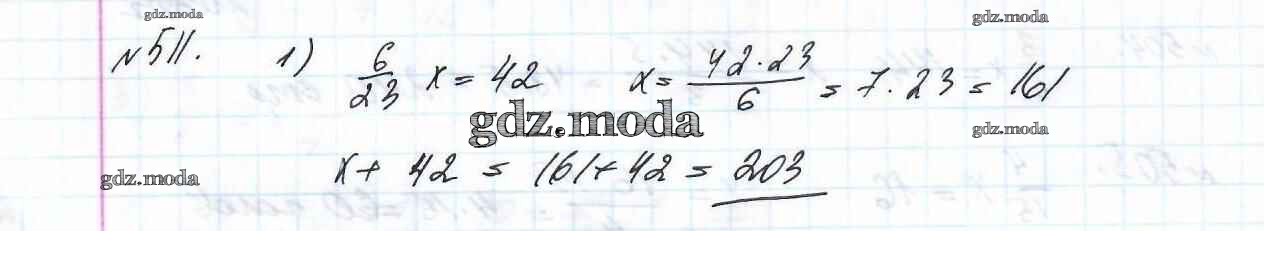 gdz.moda
gdz.moda
№511. 1) 6/23 x = 42 x = 42·23/6 = 7·23 = 161
gdz.moda
gdz.moda
x + 42 = 161 + 42 = 203
gdz.moda